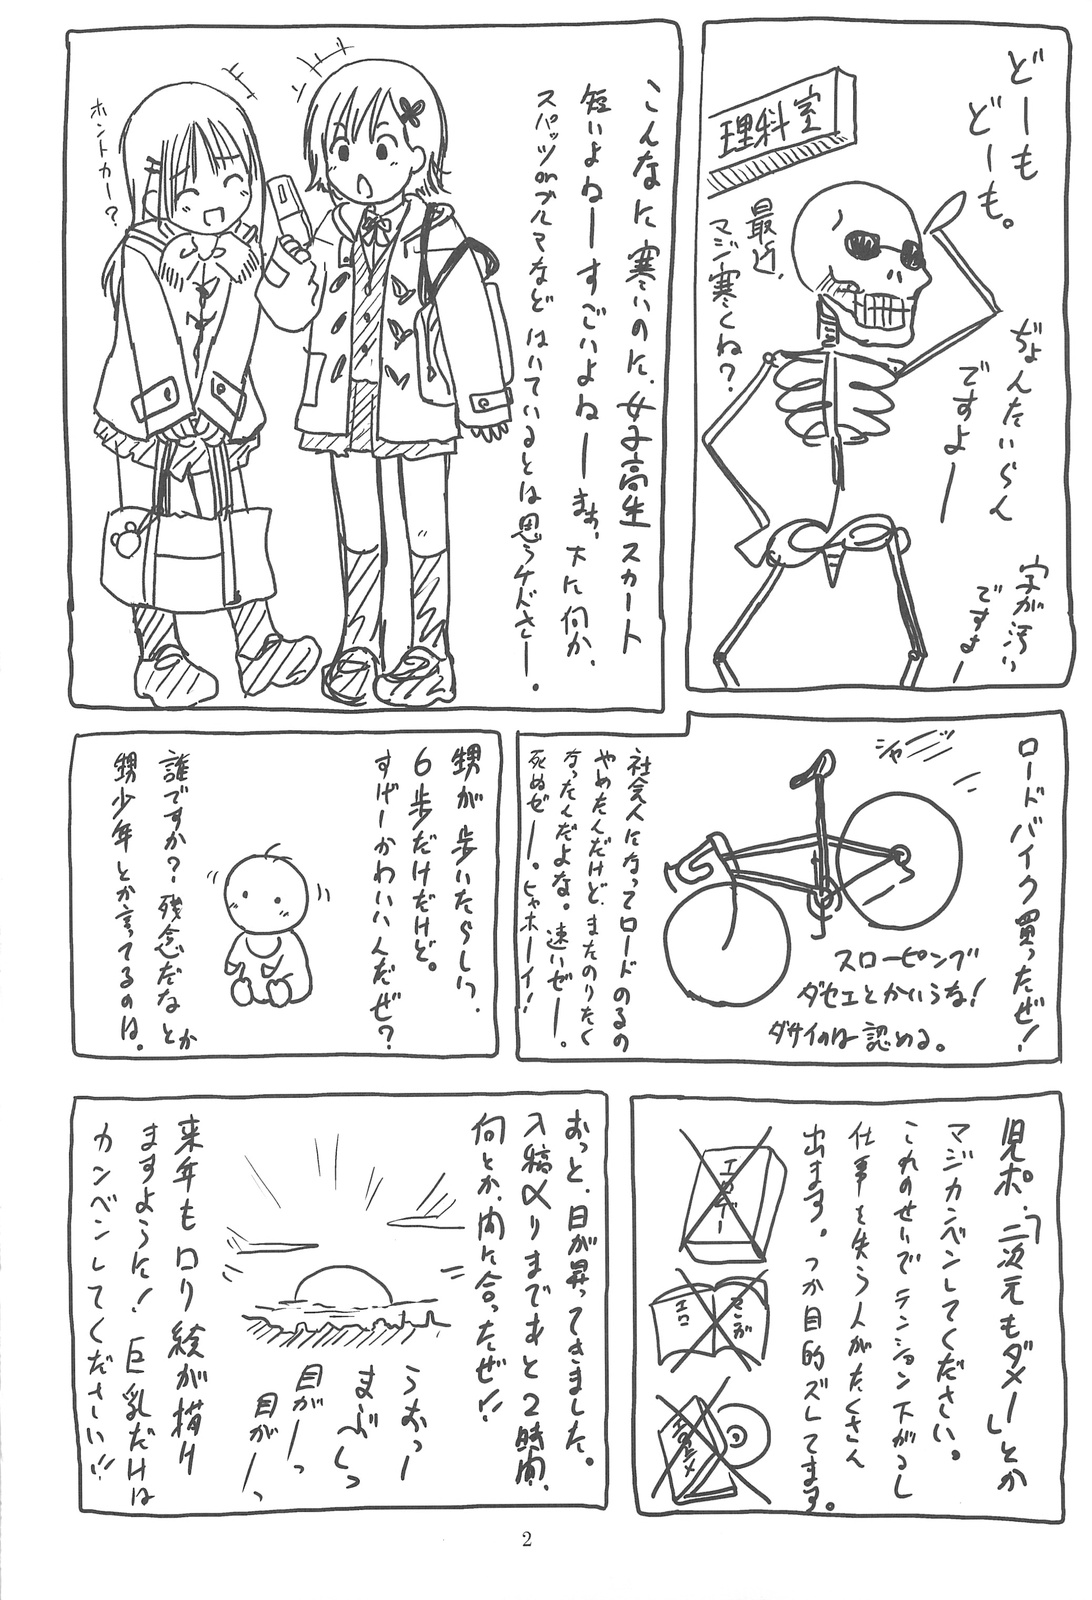 どーも
どーも。
理科室
最近、
マジ寒くね？
ぢょんたいらん
ですよー
字が汚い
ですよー
こんなに寒いのに、女子高生スカート
短いよねーすごいよねーまぁ、下に何か、
スパッツorブルマなどはいているとは思うケドさー。
ホントカー？
ロードバイク買ったぜ！
シャー
スローピング
ダセェとかいうな！
ダサイのは認める。
社会人になってロードのるの
やめたんだけど、またのりたく
なったんだよな。速いぜー。
死ぬぜー。ヒャホーイ！
甥が歩いたらしい。
6歩だけだけど。
すげーかわいいんだぜ？
誰ですか？残念だなとか
甥少年とか言ってるのは。
児ポ「二次元もダメー」とか
マジカンベンしてくださいい。
これのせいでテンション下がるし
仕事を失う人がたくさん
出ます。つか目的ズレてます。
エロゲー
エロ
まんが
エロアニメ
おっと、日が昇ってきました。
入稿〆りまであと2時間、
何とか、間に合ったぜ!!
うおっー
まぶしっ
目がーっ
目がーっ
来年もロリ絵が描け
ますように！巨乳だけは
カンベンしてくださいい!!
2